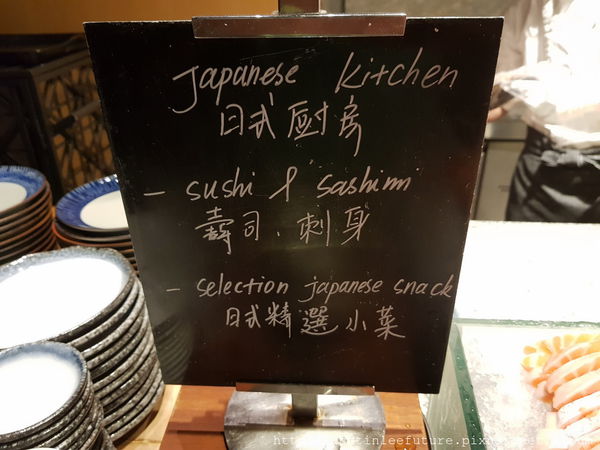 Japanese Kitchen
日式厨房
- sushi & sashimi
壽司、刺身
- selection japanese snack
日式精選小菜